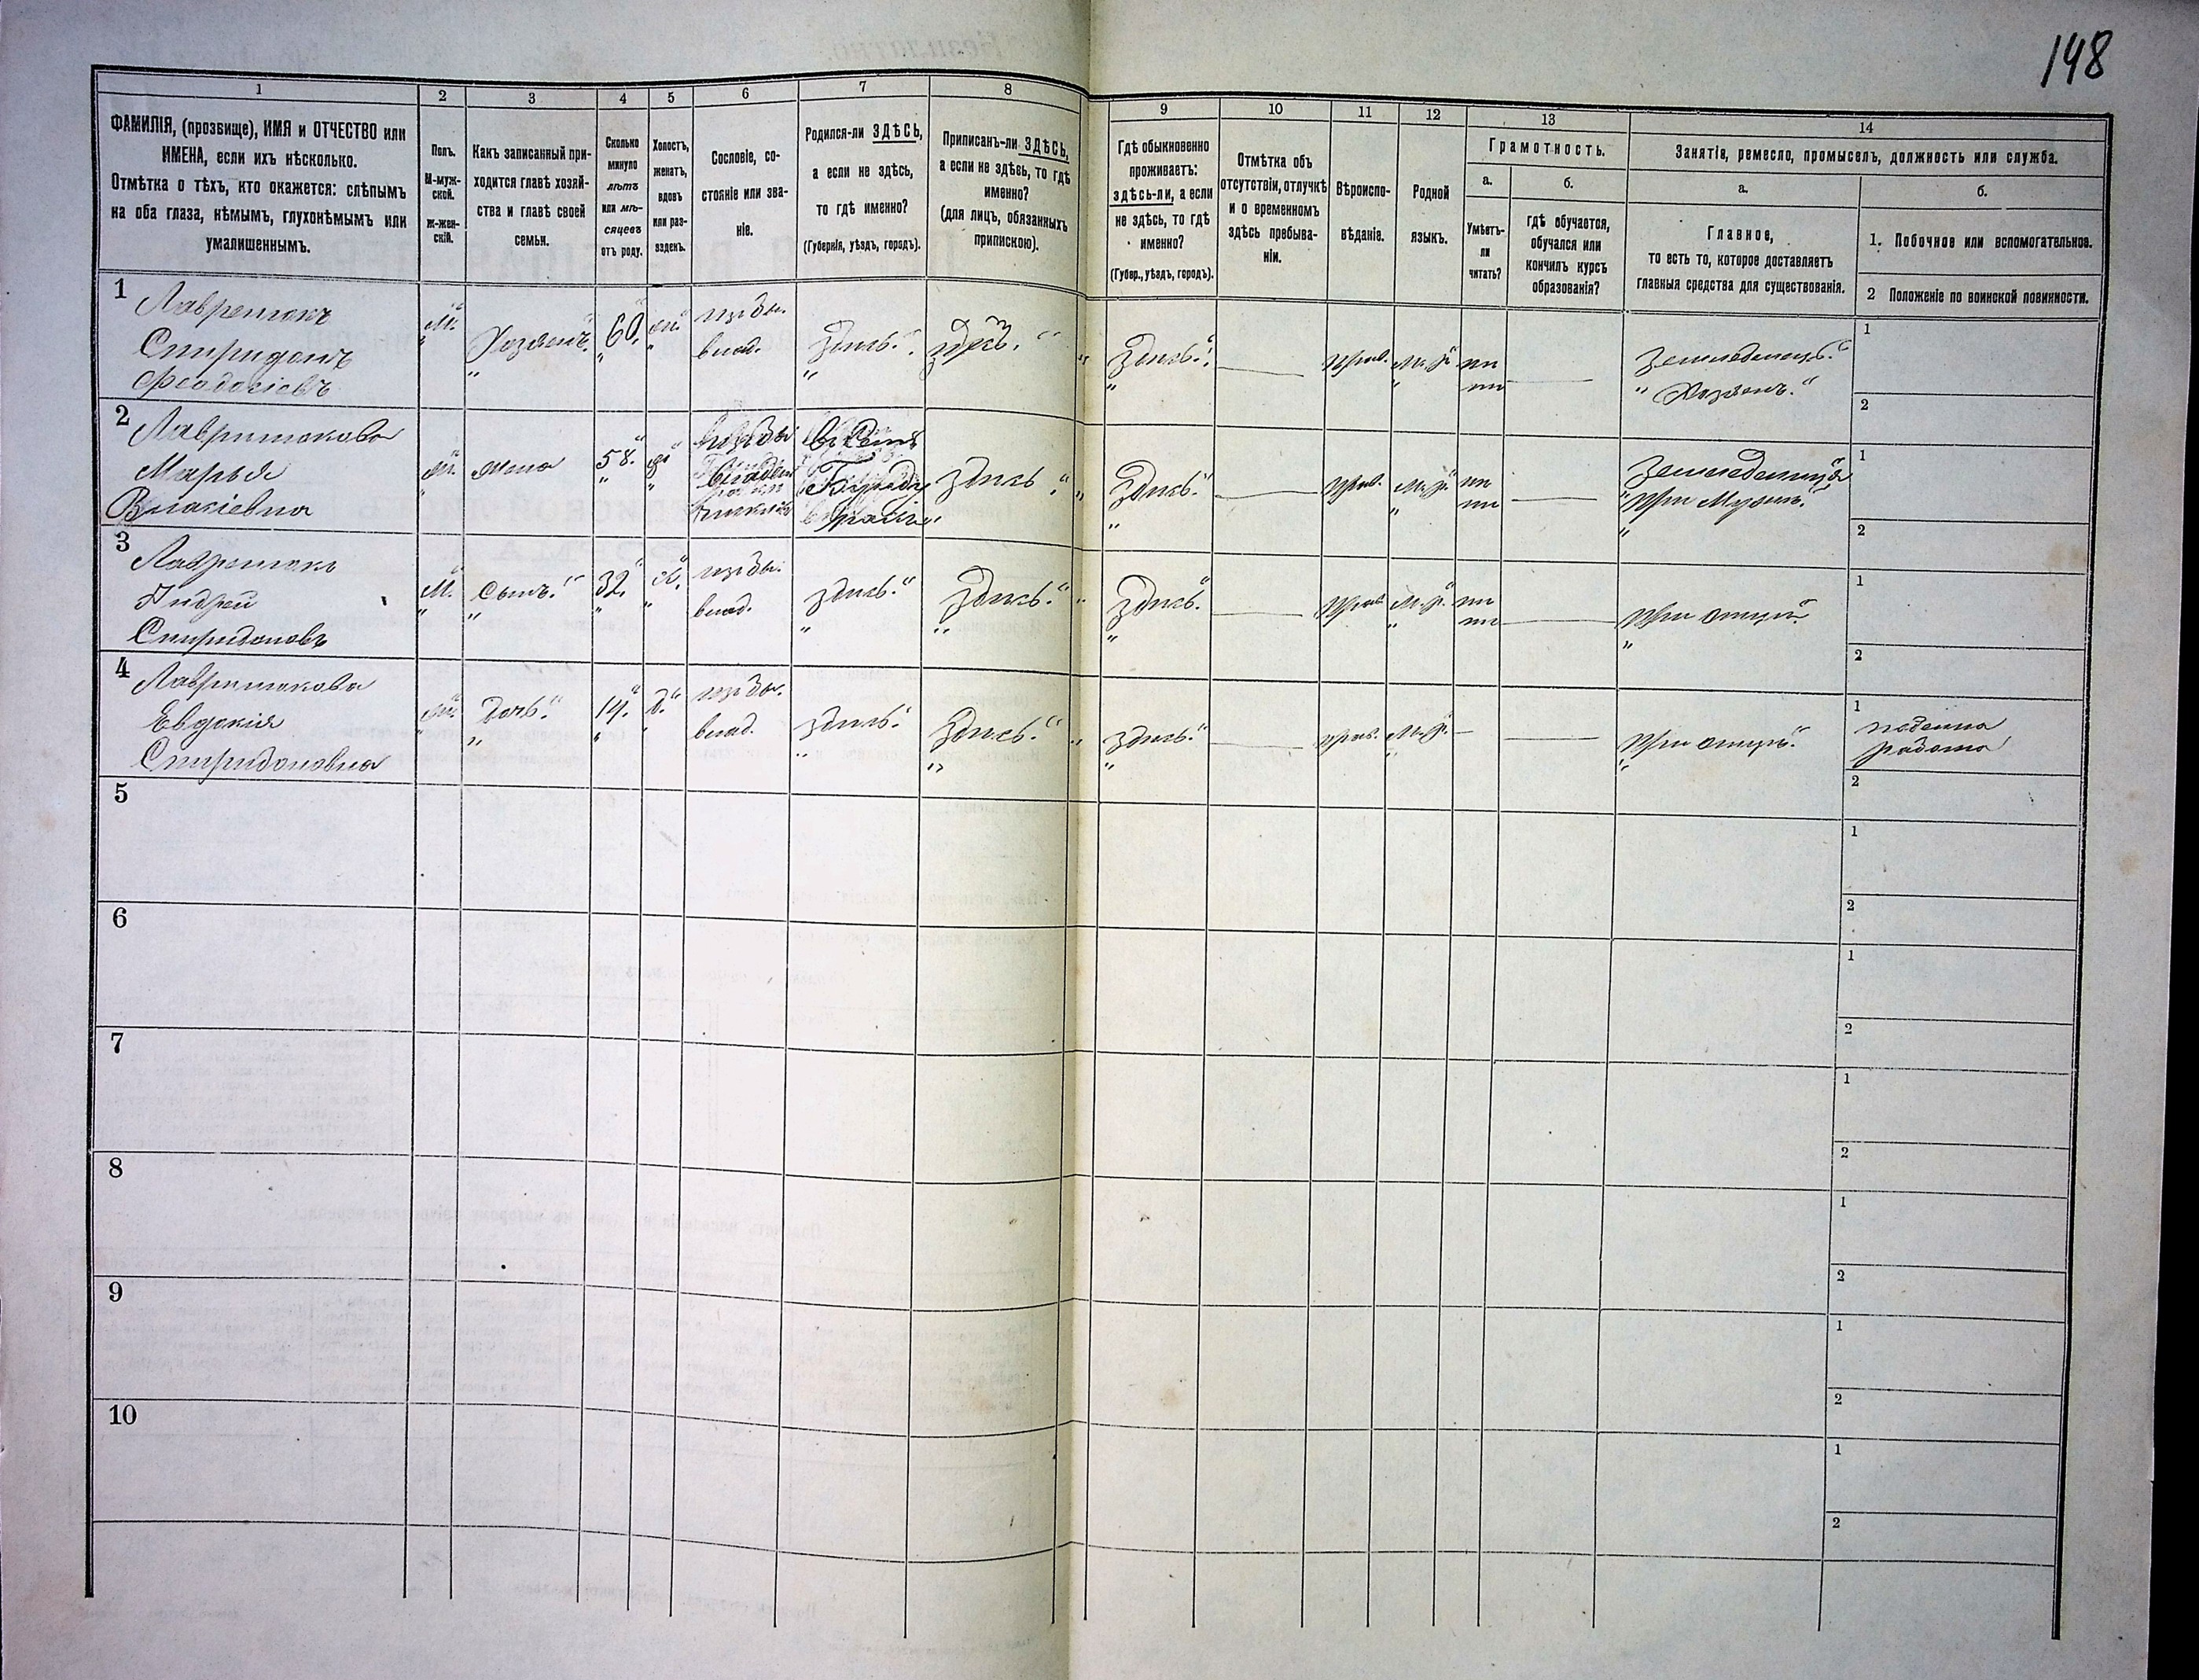 148
1
2
3
4
5
6
7
8
9
10
11
12
13
14
ФАМИЛІЯ, (прозвище), ИМЯ и ОТЧЕСТВО или
ИМЕНА, если ихъ нѣсколько.
Отмѣтка о тѣхъ, кто окажется: слѣпымъ
на оба глаза, нѣмымъ, глухонѣмымъ или
умалишеннымъ.
Полъ.
М-муж-
ской.
Ж-жен-
скій.
Какъ записанный при-
ходится главѣ хозяй-
ства и главѣ своей
семьи.
Сколько
минуло
лѣтъ
или мѣ-
сяцевъ
отъ роду.
Холостъ,
женатъ,
вдовъ
или раз-
веденъ.
Сословіе, со-
стояніе или зва-
ніе.
Родился-ли ЗДѢСЬ,
а если не здѣсь,
то гдѣ именно?
(Губернія, уѣздъ, городъ).
Приписанъ-ли ЗДѢСЬ,
а если не здѣсь, то гдѣ
именно?
(для лицъ, обязанныхъ
припискою).
Гдѣ обыкновенно
проживаетъ:
здѣсь-ли, а если
не здѣсь, то гдѣ
именно?
(Губер., уѣздъ, городъ).
Отмѣтка объ
отсутствіи, отлучкѣ
и о временномъ
здѣсь пребыва-
ніи.
Вѣроиспо-
вѣданіе.
Родной
языкъ.
Грамотность.
а.
Умѣетъ-
ли
читать?
б.
гдѣ обучается,
обучался или
кончилъ курсъ
образованія?
Занятіе, ремесло, промыселъ, должность или служба.
а.
Главное,
то есть то, которое доставляетъ
главныя средства для существованія.
б.
1. Побочное или вспомогательное.
2 Положеніе по воинской повинности.
1
Лавренюкъ
Спиридонъ
Феодосіевъ
М.
Хозяинъ.
60.
ж.
изъ бы.
влад.
Здѣсь.
здѣсь.
Здѣсь.
Прав.
М. р.
не
Земледѣлецъ.
Хозяинъ.
1
2
2
Лавринюкова
Марья
Власіевна
ж.
жена
58.
з.
Здѣсь
Здѣсь.
Прав.
М. р.
не
Земледѣлица
При Мужѣ.
1
2
3
Лавренюкъ
Андрей
Спиридоновъ
М.
Сынъ.
32.
х.
изъ бы.
влад.
здѣсь.
Здѣсь.
Здѣсь.
Прав.
М. р.
не
При отцѣ.
1
2
4
Лавринюкова
Евдокія
Спиридоновна
ж.
Дочь.
14.
д.
изъ бы.
влад.
здѣсь.
Здѣсь.
здѣсь.
прав.
М. р.
При отцѣ.
1
поденна
работа
2
5
1
2
6
1
2
7
1
2
8
1
2
9
1
2
10
1
2